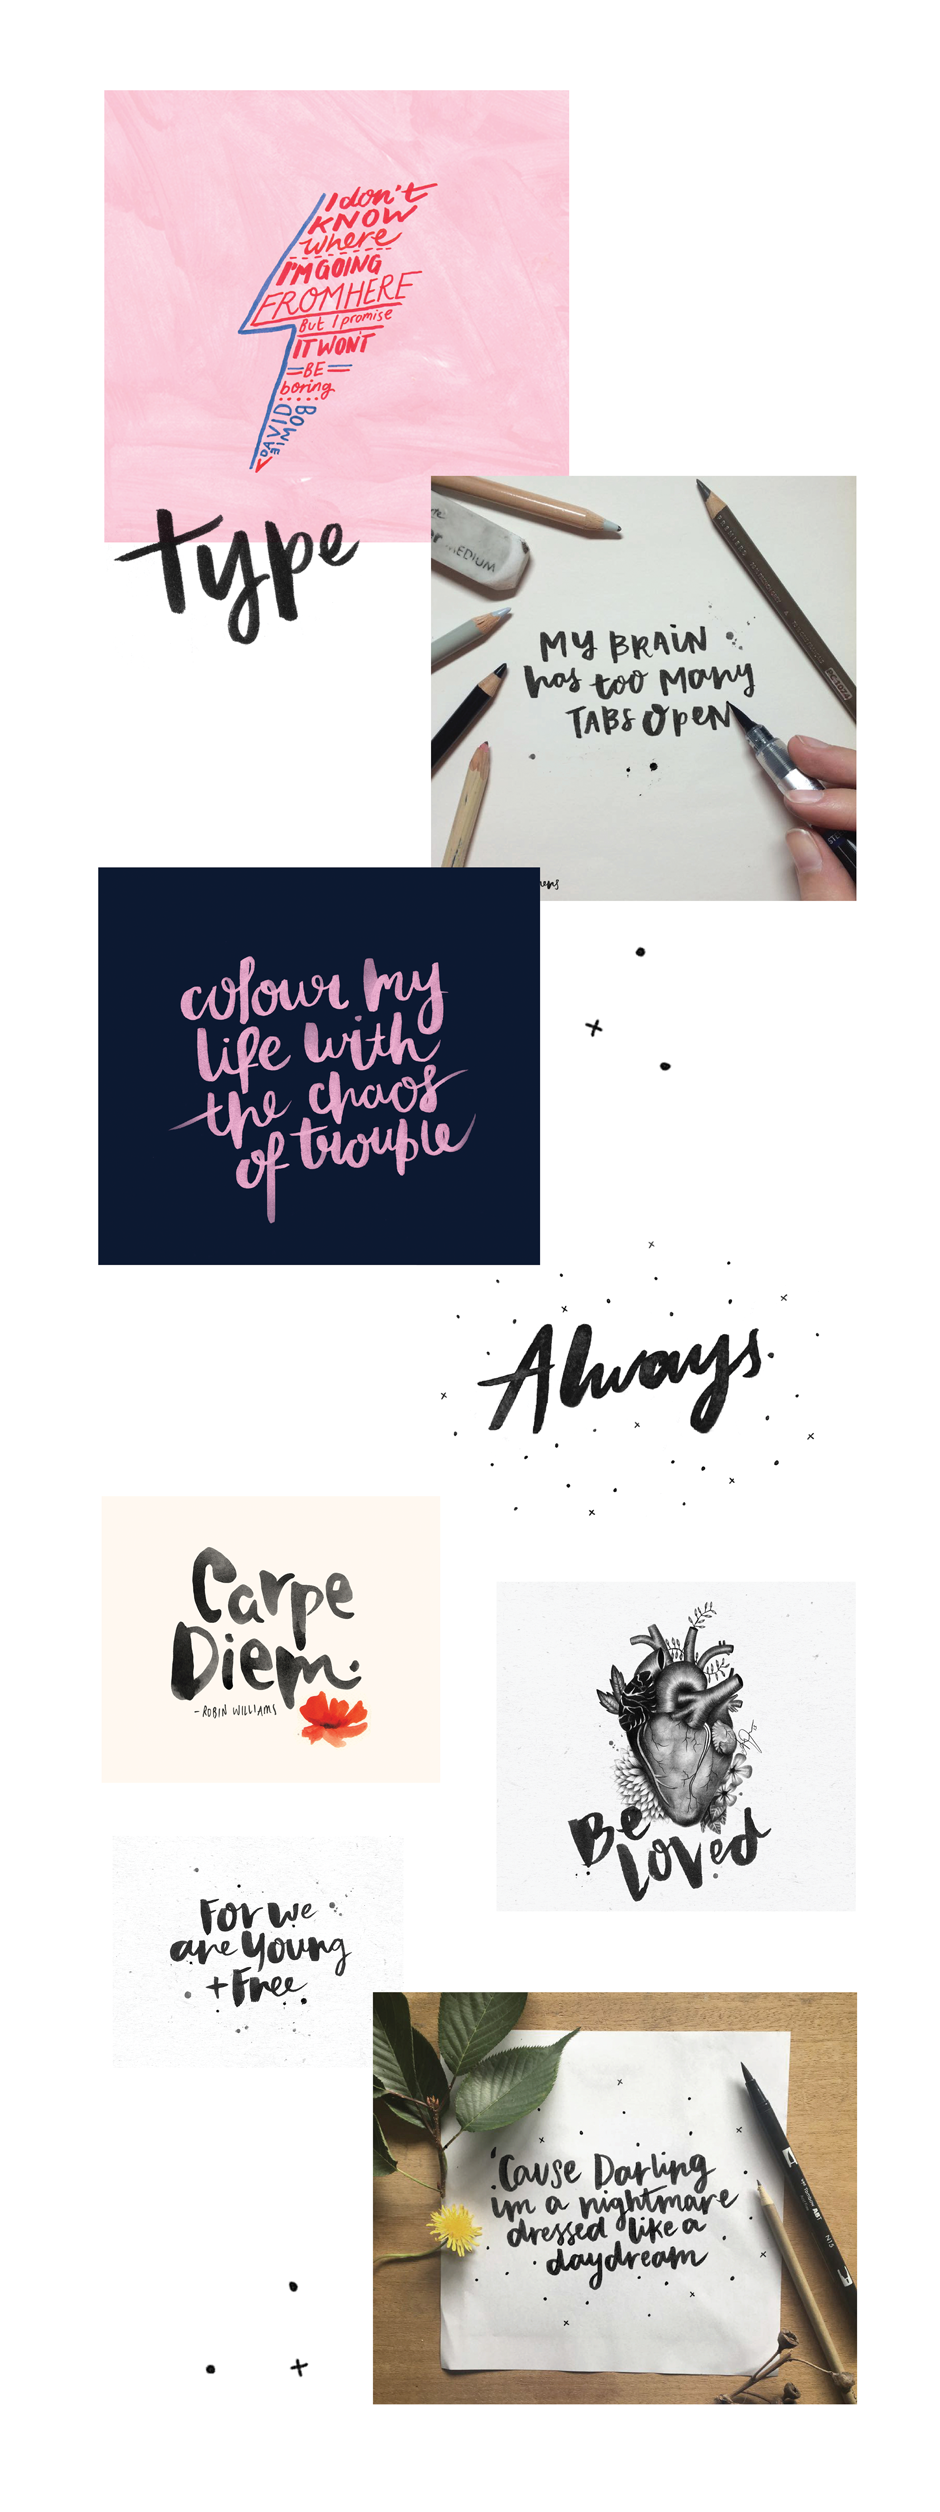 I don't
KNOW
where
I'M GOING
FROM HERE
But I promise
IT WON'T
BE
boring
DAVID
BOWIE
type
MEDIUM
MY BRAIN
has too Many
TABS OPEN
colour my
life with
the chaos
of trouble
Always
Carpe
Diem.
- ROBIN WILLIAMS
Be
loved
For we
are Young
+ Free
'Cause Darling
im a nightmare
dressed like a
daydream
ABT
N15